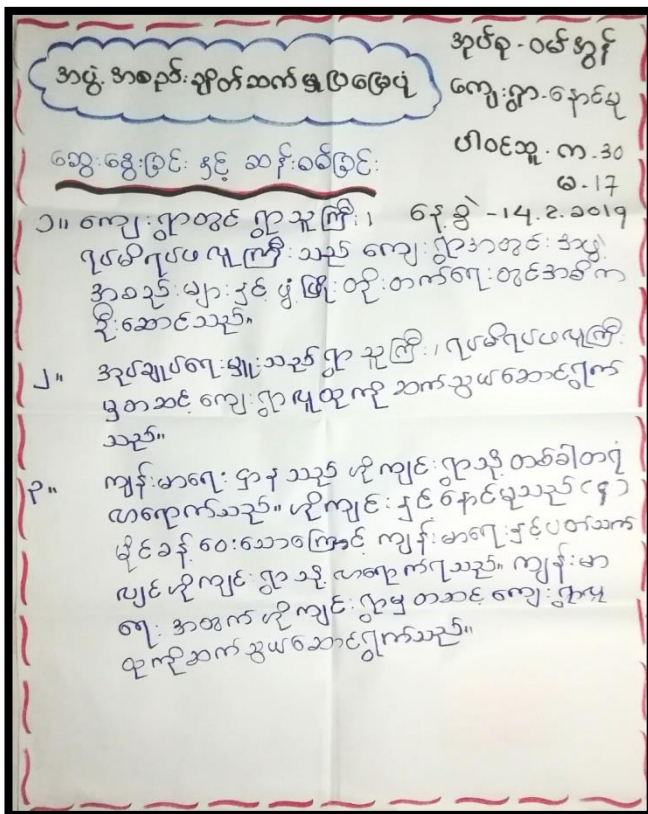 အဖွဲ့အစည်းချိတ်ဆက်မှုပြမြေပုံ
အုပ်စု - ဝမ်အွန်
ကျေးရွာ - နောင်မု
ပါဝင်သူ - က - 30
မ - 17
နေ့စွဲ - 14.2.2019
ဆွေးနွေးခြင်း နှင့် ဆန်းစစ်ခြင်း
၁။ ကျေးရွာတွင် ရွာသူကြီး၊
ရပ်မိရပ်ဖလူကြီးသည် ကျေးရွာအတွင်းအဖွဲ့
အစည်းများနှင့် ဖွံ့ဖြိုးတိုးတက်ရေးတွင်အဓိက
ဦးဆောင်သည်။
၂။ အုပ်ချုပ်ရေးမှူးသည် ရွာသူကြီး၊ ရပ်မိရပ်ဖလူကြီး
မှတဆင့် ကျေးရွာလူထုကို ဆက်သွယ်ဆောင်ရွက်
သည်။
၃။ ကျန်းမာရေးဌာနသည် ဟိုကျင်းရွာသို့ တစ်ခါတရံ
လာရောက်သည်။ ဟိုကျင်းနှင့်နောင်မုသည် (၄)
မိုင်ခန့် ဝေးသောကြောင့် ကျန်းမာရေးနှင့်ပတ်သက်
လျင် ဟိုကျင်းရွာသို့ လာရောက်ရသည်။ ကျန်းမာ
ရေး အတွက် ဟိုကျင်းရွာမှ တဆင့် ကျေးရွာလူ
ထုကိုဆက်သွယ်ဆောင်ရွက်သည်။